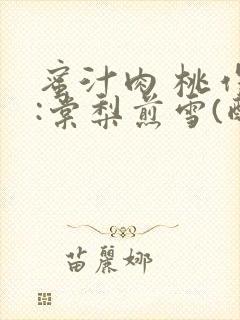 蜜汁肉桃作
:棠梨煎雪(酥
苗麗娜